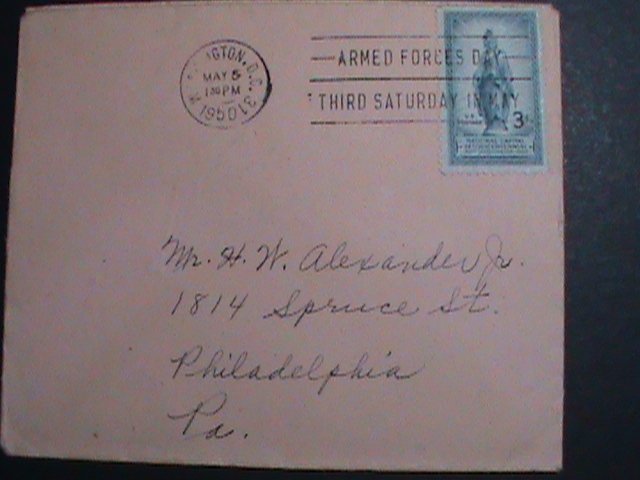 INGTON, D.C. 31
MAY 5
1 30 PM
1950
ARMED FORCES DAY
THIRD SATURDAY IN MAY
3
NATIONAL CAPITAL
SESQUICENTENNIAL
Mr. H. W. Alexander Jr.
1814 Spruce St.
Philadelphia
Pa.